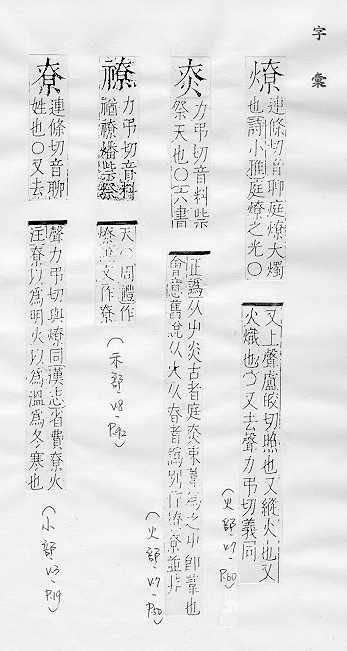 字彙
燎
連條切音聊庭燎大燭
也詩小雅庭燎之光〇
又上聲盧皎切照也又縱火也又
火熾也〇又去聲力弔切義同
(火部.V7.P.60)
力弔切音料柴
祭天也〇六書
正譌从屮炎古者庭炎束葦為之屮即葦也
會意舊从火从昚者譌別作燎尞並非
(火部.V7.P.50)
力弔切音料
燔柴祭
天也周禮作
燎古文作尞
(示部.V8.P.92)
尞
連條切音聊
姓也〇又去
聲力弔切與燎同漢志省費尞火
注尞以為明火以為溫為冬寒也
(小部.V.3.P.19)